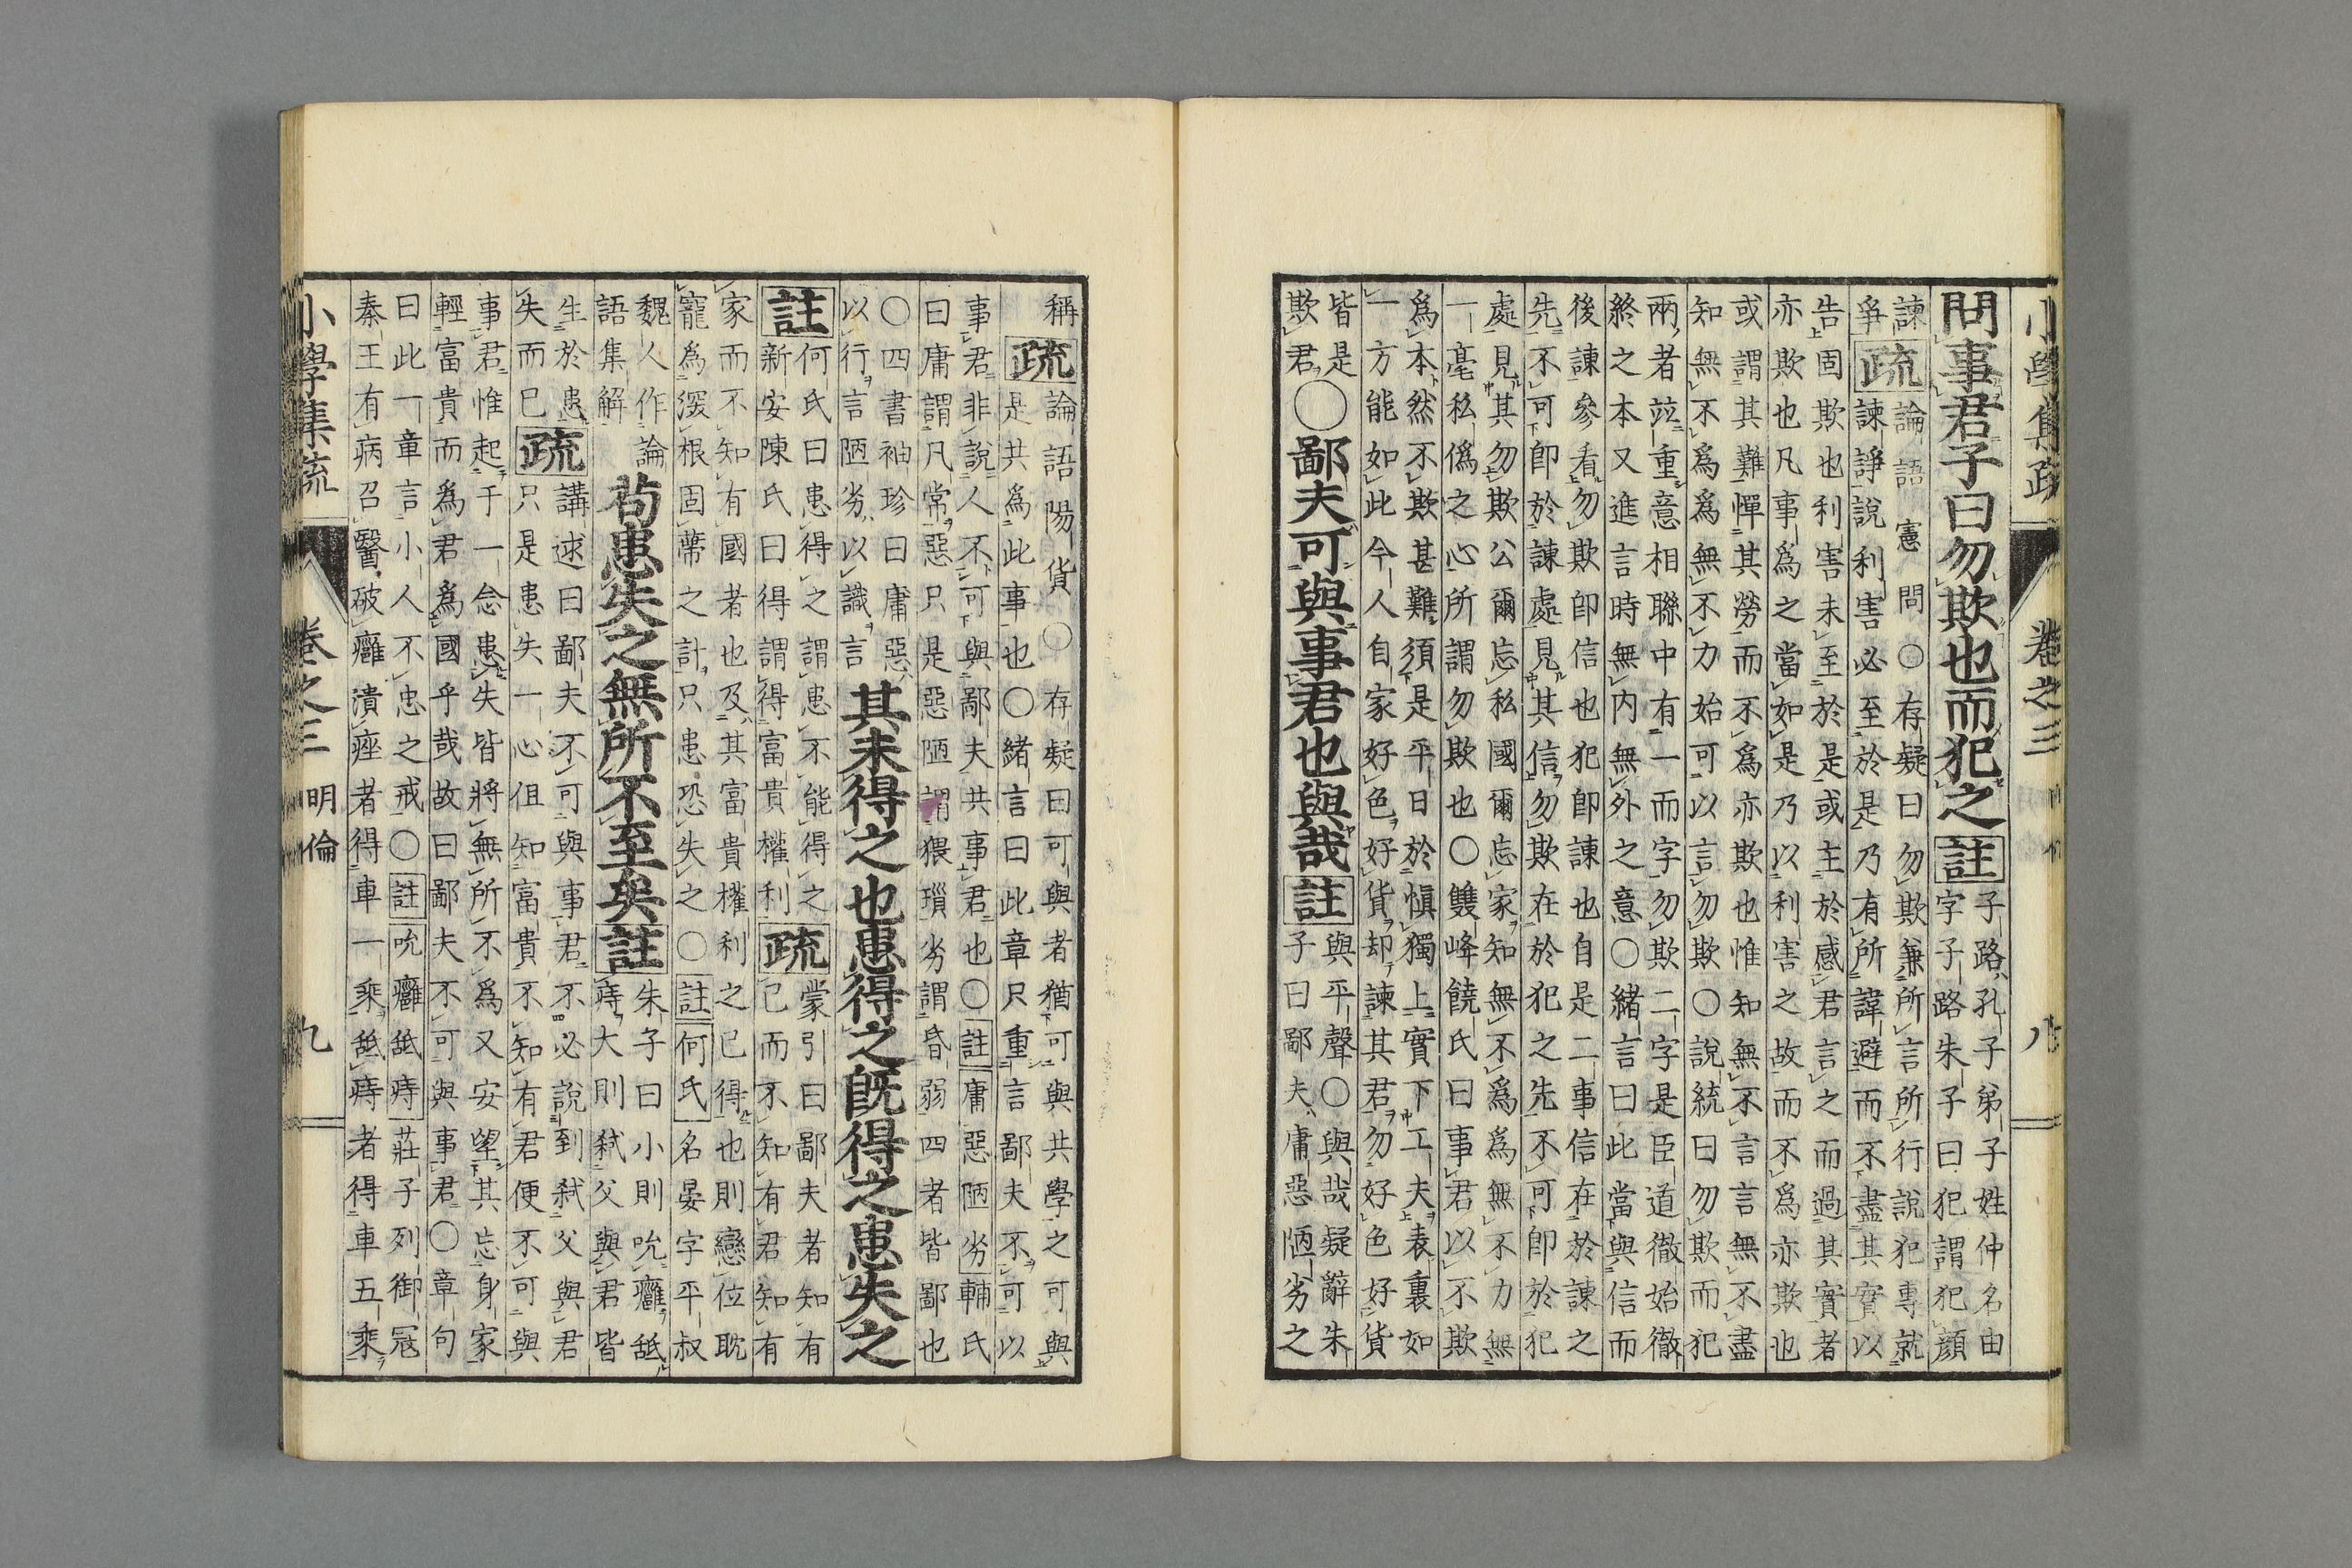 小學集疏 卷之三 八
問事君子曰勿欺也而犯之註子路孔子弟子姓仲名由
字子路朱子曰犯謂犯顔
諫 論語憲問○存疑曰勿欺兼所言所行說犯專就
爭疏諫諍說利害必至於是乃有所諱避而不盡其實以
告固欺也利害未至於是或主於感君言之而過其實者
亦欺也凡事爲之當如是乃以利害之故而不爲亦欺也
或謂其難憚其勞而不爲亦欺也惟知無不言言無不盡
知無不爲爲無不力始可以言勿欺○說統曰勿欺而犯
兩者竝重意相聯中有一而字勿欺二字是臣道徹始徹
終之本又進言時無內無外之意○緒言曰此當與信而
後諫參看勿欺卽信也犯卽諫也自是二事信在於諫之
先不可卽於諫處見其信勿欺在於犯之先不可卽於犯
處見其勿欺公爾忘私國爾忘家知無不爲爲無不力無
一毫私僞之心所謂勿欺也○雙峰饒氏曰事君以不欺
爲本然不欺甚難須是平日於愼獨上實下工夫表裏如
一方能如此今人自家好色好貨却諫其君勿好色好貨
皆是
欺君○鄙夫可與事君也與哉註與平聲○與哉疑辭朱
子曰鄙夫庸惡陋劣之
稱 論語陽貨○存疑曰可與者猶可與共學之可與
疏是共爲此事也○緒言曰此章只重言鄙夫不可以
事君非說人不可與鄙夫共事君也○註庸惡陋劣輔氏
曰庸謂凡常惡只是惡陋謂猥瑣劣謂昏弱四者皆鄙也
○四書袖珍曰庸惡
以行言陋劣以識言其未得之也患得之旣得之患失之
註何氏曰患得之謂患不能得之
新安陳氏曰得謂得富貴權利疏蒙引曰鄙夫者知有
已而不知有君知有
家而不知有國者也及其富貴權利之已得也則戀位耽
寵爲深根固蔕之計只患恐失之○註何氏名晏字平叔
魏人作論
語集解苟患失之無所不至矣註朱子曰小則吮癰舐
痔大則弒父與君皆
生於患
失而已疏講述曰鄙夫不可與事君不必說到弒父與君
只是患失一心但知富貴不知有君便不可與
事君惟起于一念患失皆將無所不爲又安望其忘身家
輕富貴而爲君爲國乎哉故曰鄙夫不可與事君○章句
曰此一章言小人不忠之戒○註吮癰舐痔莊子列御冦
秦王有病召醫破癰潰痤者得車一乘舐痔者得車五乘
小學集疏 卷之三 明倫 九